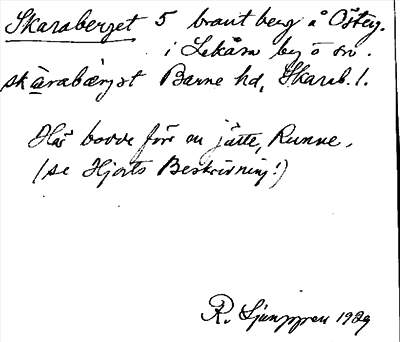 Skaraberget 5 brant berg å Österg.
i Lekåsa by o sn.
skàrabær̡et Barne hd, Skarab. l.
Här bodde förr en jätte, Runne.
(se Hjorts Beskrivning!)
R. Ljunggren 1929